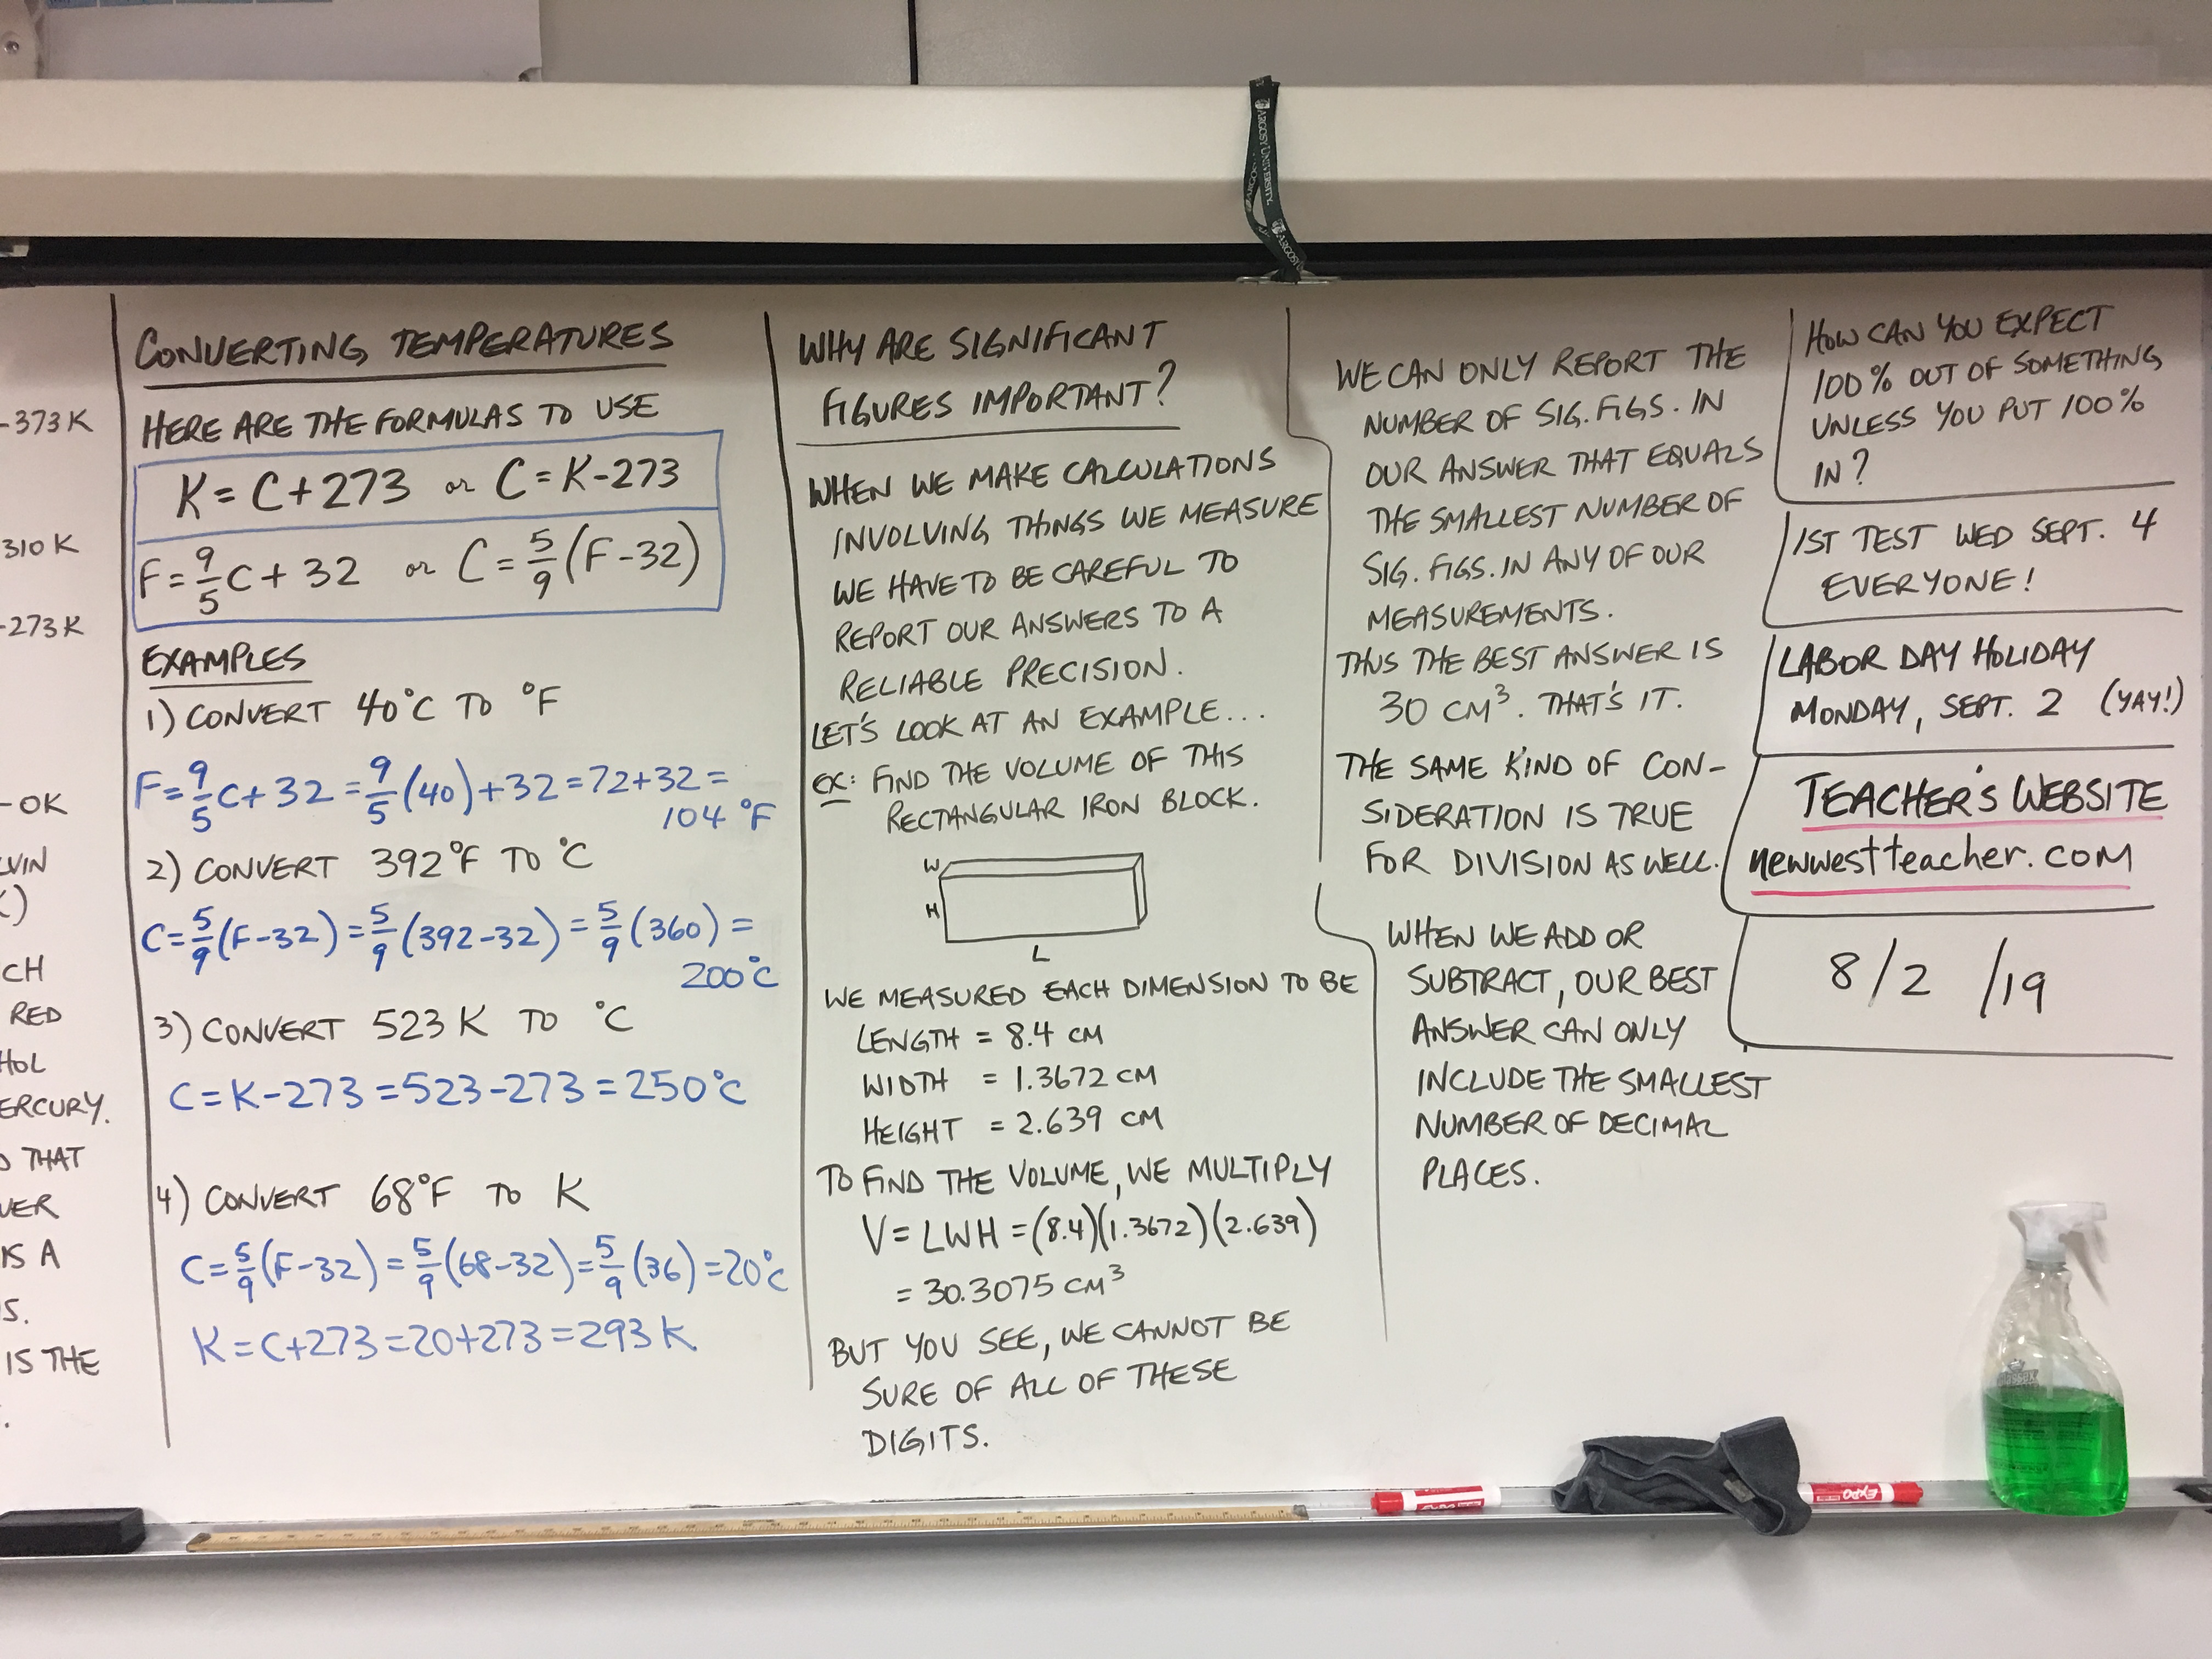 -373 K
310 K
-273 K
-OK
CH
RED
ERCURY.
THAT
IS A
IS THE
CONVERTING TEMPERATURES
HERE ARE THE FORMULAS TO USE
K = C + 273 or C = K - 273
F = 9/5 C + 32 or C = 5/9 (F - 32)
EXAMPLES
1) CONVERT 40°C TO °F
F = 9/5 C + 32 = 9/5 (40) + 32 = 72 + 32 =
104 °F
2) CONVERT 392°F TO °C
C = 5/9 (F - 32) = 5/9 (392 - 32) = 5/9 (360) =
200°C
3) CONVERT 523 K TO °C
C = K - 273 = 523 - 273 = 250°C
4) CONVERT 68°F TO K
C = 5/9 (F - 32) = 5/9 (68 - 32) = 5/9 (36) = 20°C
K = C + 273 = 20 + 273 = 293 K
WHY ARE SIGNIFICANT
FIGURES IMPORTANT?
WHEN WE MAKE CALCULATIONS
INVOLVING THINGS WE MEASURE
WE HAVE TO BE CAREFUL TO
REPORT OUR ANSWERS TO A
RELIABLE PRECISION.
LET'S LOOK AT AN EXAMPLE...
EX: FIND THE VOLUME OF THIS
RECTANGULAR IRON BLOCK.
W
H
L
WE MEASURED EACH DIMENSION TO BE
LENGTH = 8.4 CM
WIDTH = 1.3672 CM
HEIGHT = 2.639 CM
TO FIND THE VOLUME, WE MULTIPLY
V = LWH = (8.4)(1.3672)(2.639)
= 30.3075 CM³
BUT YOU SEE, WE CANNOT BE
SURE OF ALL OF THESE
DIGITS.
WE CAN ONLY REPORT THE
NUMBER OF SIG. FIGS. IN
OUR ANSWER THAT EQUALS
THE SMALLEST NUMBER OF
SIG. FIGS. IN ANY OF OUR
MEASUREMENTS.
THUS THE BEST ANSWER IS
30 CM³. THAT'S IT.
THE SAME KIND OF CON-
SIDERATION IS TRUE
FOR DIVISION AS WELL.
WHEN WE ADD OR
SUBTRACT, OUR BEST
ANSWER CAN ONLY
INCLUDE THE SMALLEST
NUMBER OF DECIMAL
PLACES.
HOW CAN YOU EXPECT
100% OUT OF SOMETHING
UNLESS YOU PUT 100%
IN?
1ST TEST WED SEPT. 4
EVERYONE!
LABOR DAY HOLIDAY
MONDAY, SEPT. 2 (YAY!)
TEACHER'S WEBSITE
newwestteacher.com
8/2 /19
ARGOSY UNIVERSITY.
EXPO
EXPO